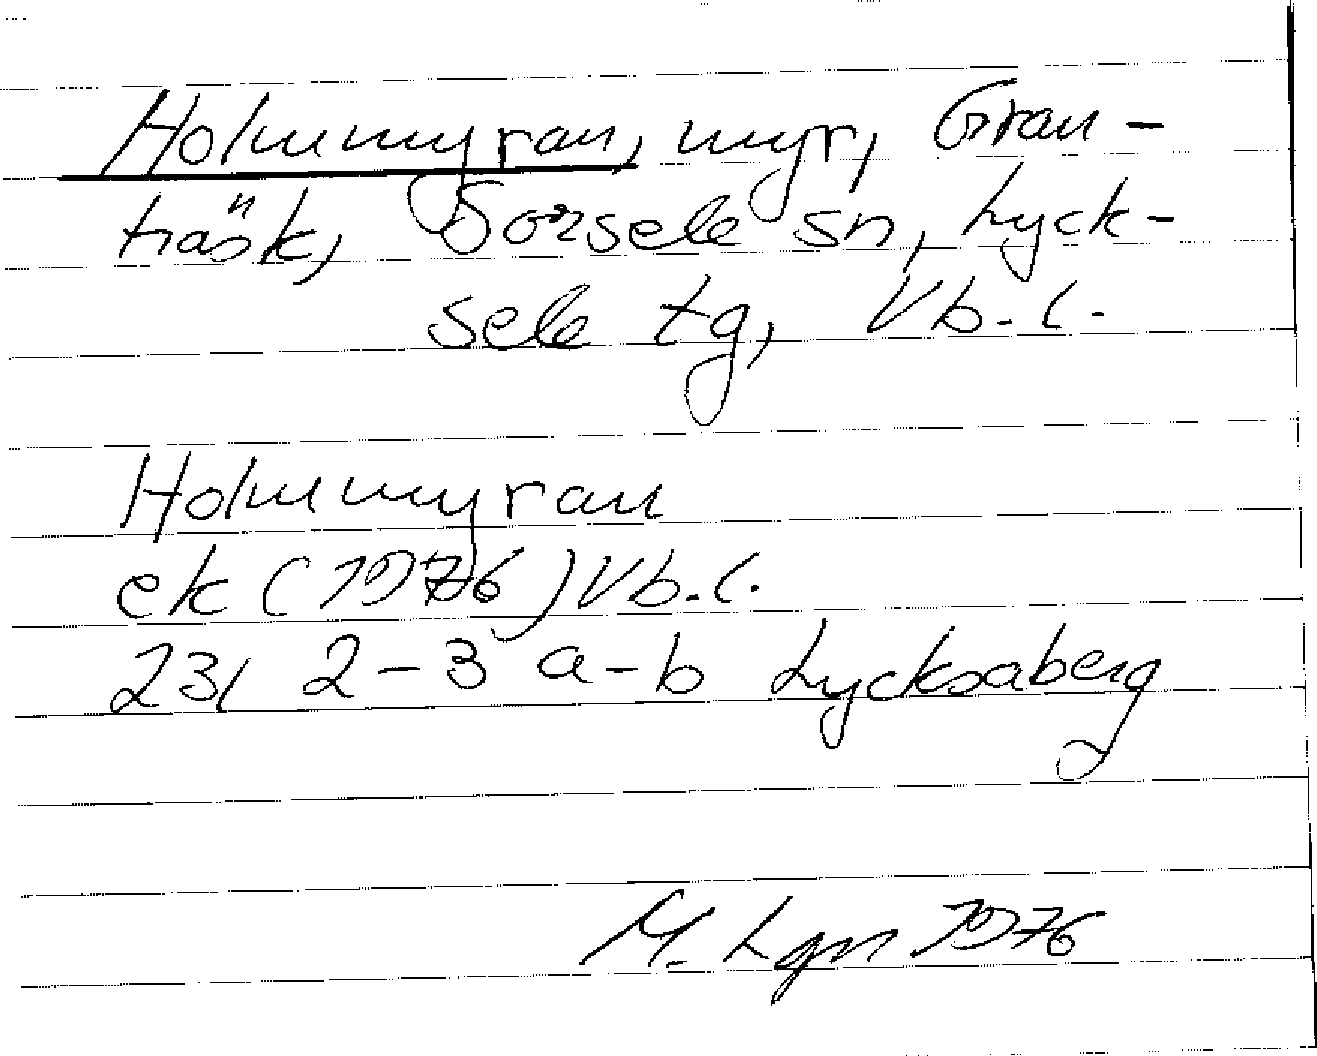 Holmmyran, myr, Gran-
träsk, Sorsele sn, Lyck-
sele tg, Vb. l.
Holmmyran
ek (1976) Vb. l.
23I 2-3 a-b Lycksaberg
M. Lgn 1976